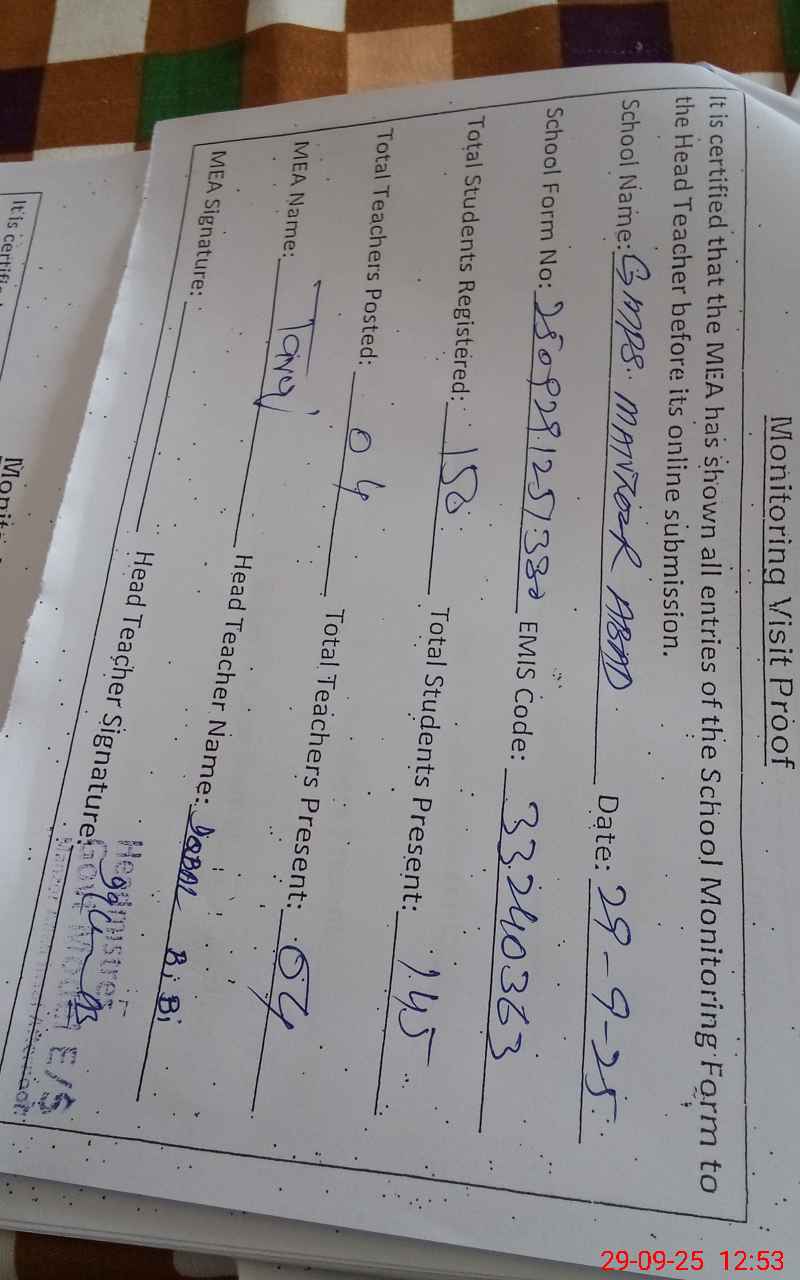 Monitoring Visit Proof
It is certified that the MEA has shown all entries of the School Monitoring Form to
the Head Teacher before its online submission.
School Name: GMPS. MANZOOR ABAD Date: 29-9-25
School Form No: 2509291251380 EMIS Code: 33240363
Total Students Registered: 150 Total Students Present: 145
Total Teachers Posted: 04 Total Teachers Present: 04
MEA Name: Tariq Head Teacher Name: IQBAL BiBi
MEA Signature: Head Teacher Signature:
Headmistress
Govt Model E/S
It is certifi
Monit
29-09-25 12:53